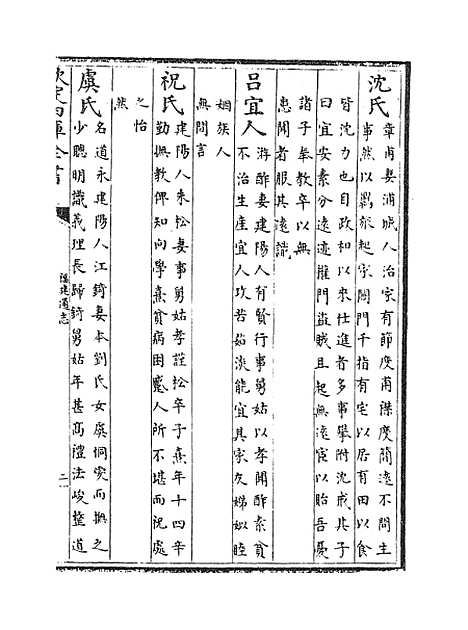 沈氏 章甫妻浦城人治家有節度甫襟度簡遠不問生
事然以羈旅起家闔門千指有宅以居有田以食
皆沈力也自政和以來仕進者多事攀附沈戒其子
曰宜安素分遠迹權門盜賊且起無遠宦以貽吾憂
諸子奉教卒以無
患聞者服其遠識
呂宜人 游酢妻建陽人有賢行事舅姑以孝聞酢素貧
不治生產宜人攻苦茹淡能宜其家友娣姒睦
姻族人
無間言
祝氏 建陽人朱松妻事舅姑孝謹松卒子熹年十四辛
勤撫教俾知向學熹貧病困蹙人所不堪而祝處
之怡
然
虞氏 名道永建陽人江錡妻本劉氏女虞恫家而撫之
少聰明識義理長歸錡舅姑年甚高禮法峻整道
欽定四庫全書
福建通志
二